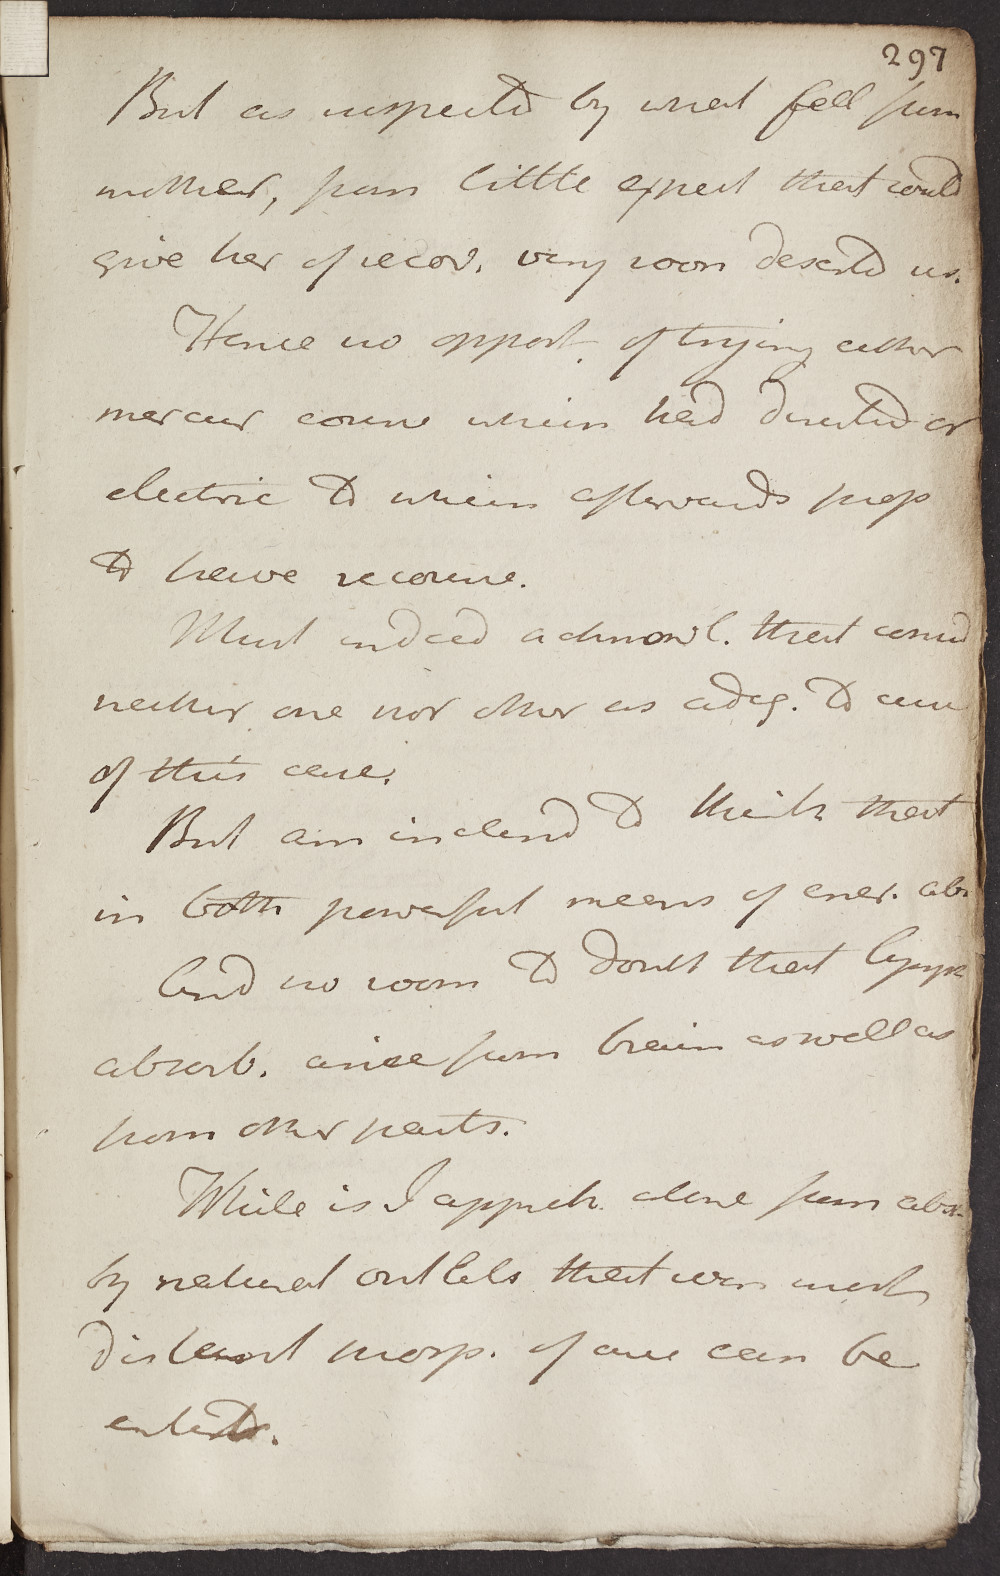 297
But as suspected by what fell from
mother, from little expect that could
give her of recov. very soon deserted us.
Hence no opport. of trying either
mercur course which had directed or
electric to which afterwards prop
to have recourse.
Must indeed acknowl. that consid
neither one nor other as adeq. to cure
of this case.
But am inclend to think that
in both powerful means of ener. abs
And no room to doubt that lymph
absorb. arise from brain as well as
from other parts.
While is I appreh. alone from abs
by natural outlets that even most
distant prosp. of cure can be